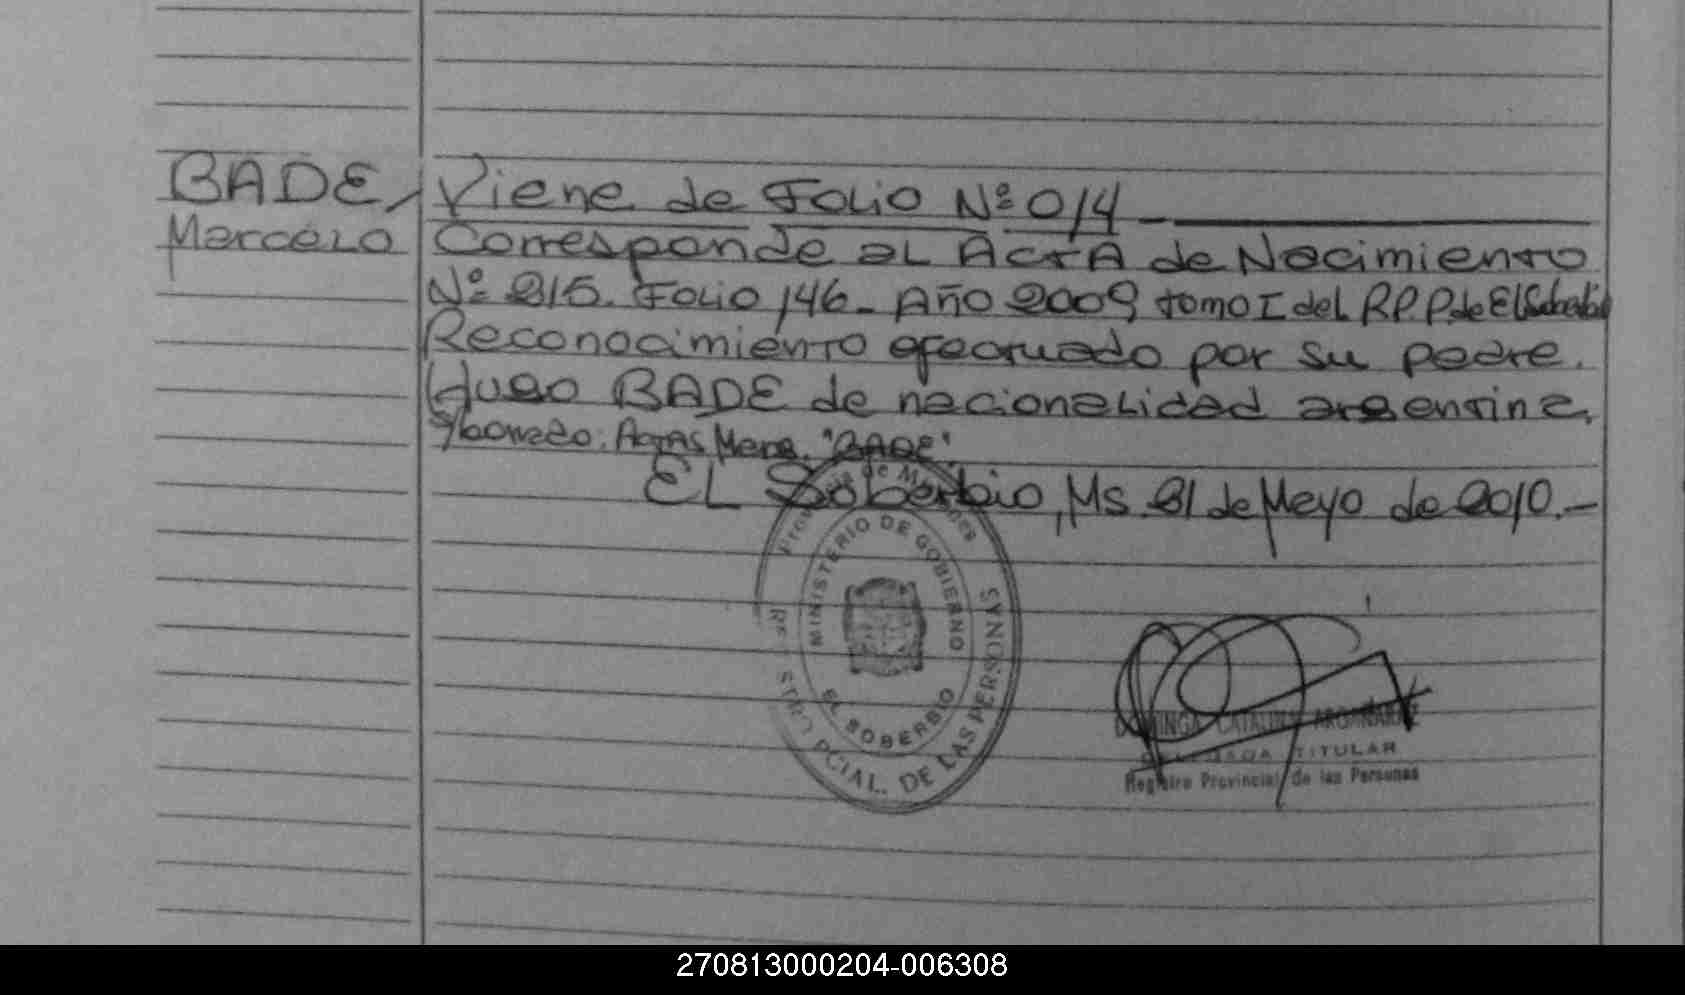 BADE,
Marcelo
Viene de Folio Nº 014 -
Corresponde al Acta de Nacimiento
Nº 215. Folio 146- Año 2009, tomo I del R.P.P. de El Soberbio
Reconocimiento efectuado por su padre.
Hugo BADE de nacionalidad argentina.
"BADE"
EL Soberbio, Ms. 31 de Mayo de 2010.-
Provincia de Misiones
MINISTERIO DE GOBIERNO
EL SOBERBIO
PCIAL. DE LAS PERSONAS
DOMINGA CATALINA ARGAÑARAZ
DELEGADA TITULAR
Registro Provincial de las Personas
270813000204-006308